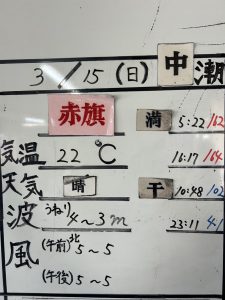 3/15(日) 中潮
赤旗 満 5:22/162
気温 22℃ 16:17/164
天気 晴 干 10:48/102
波 うねり 4~3m 23:11/41
風 (午前)北 5~5
(午後) 5~5